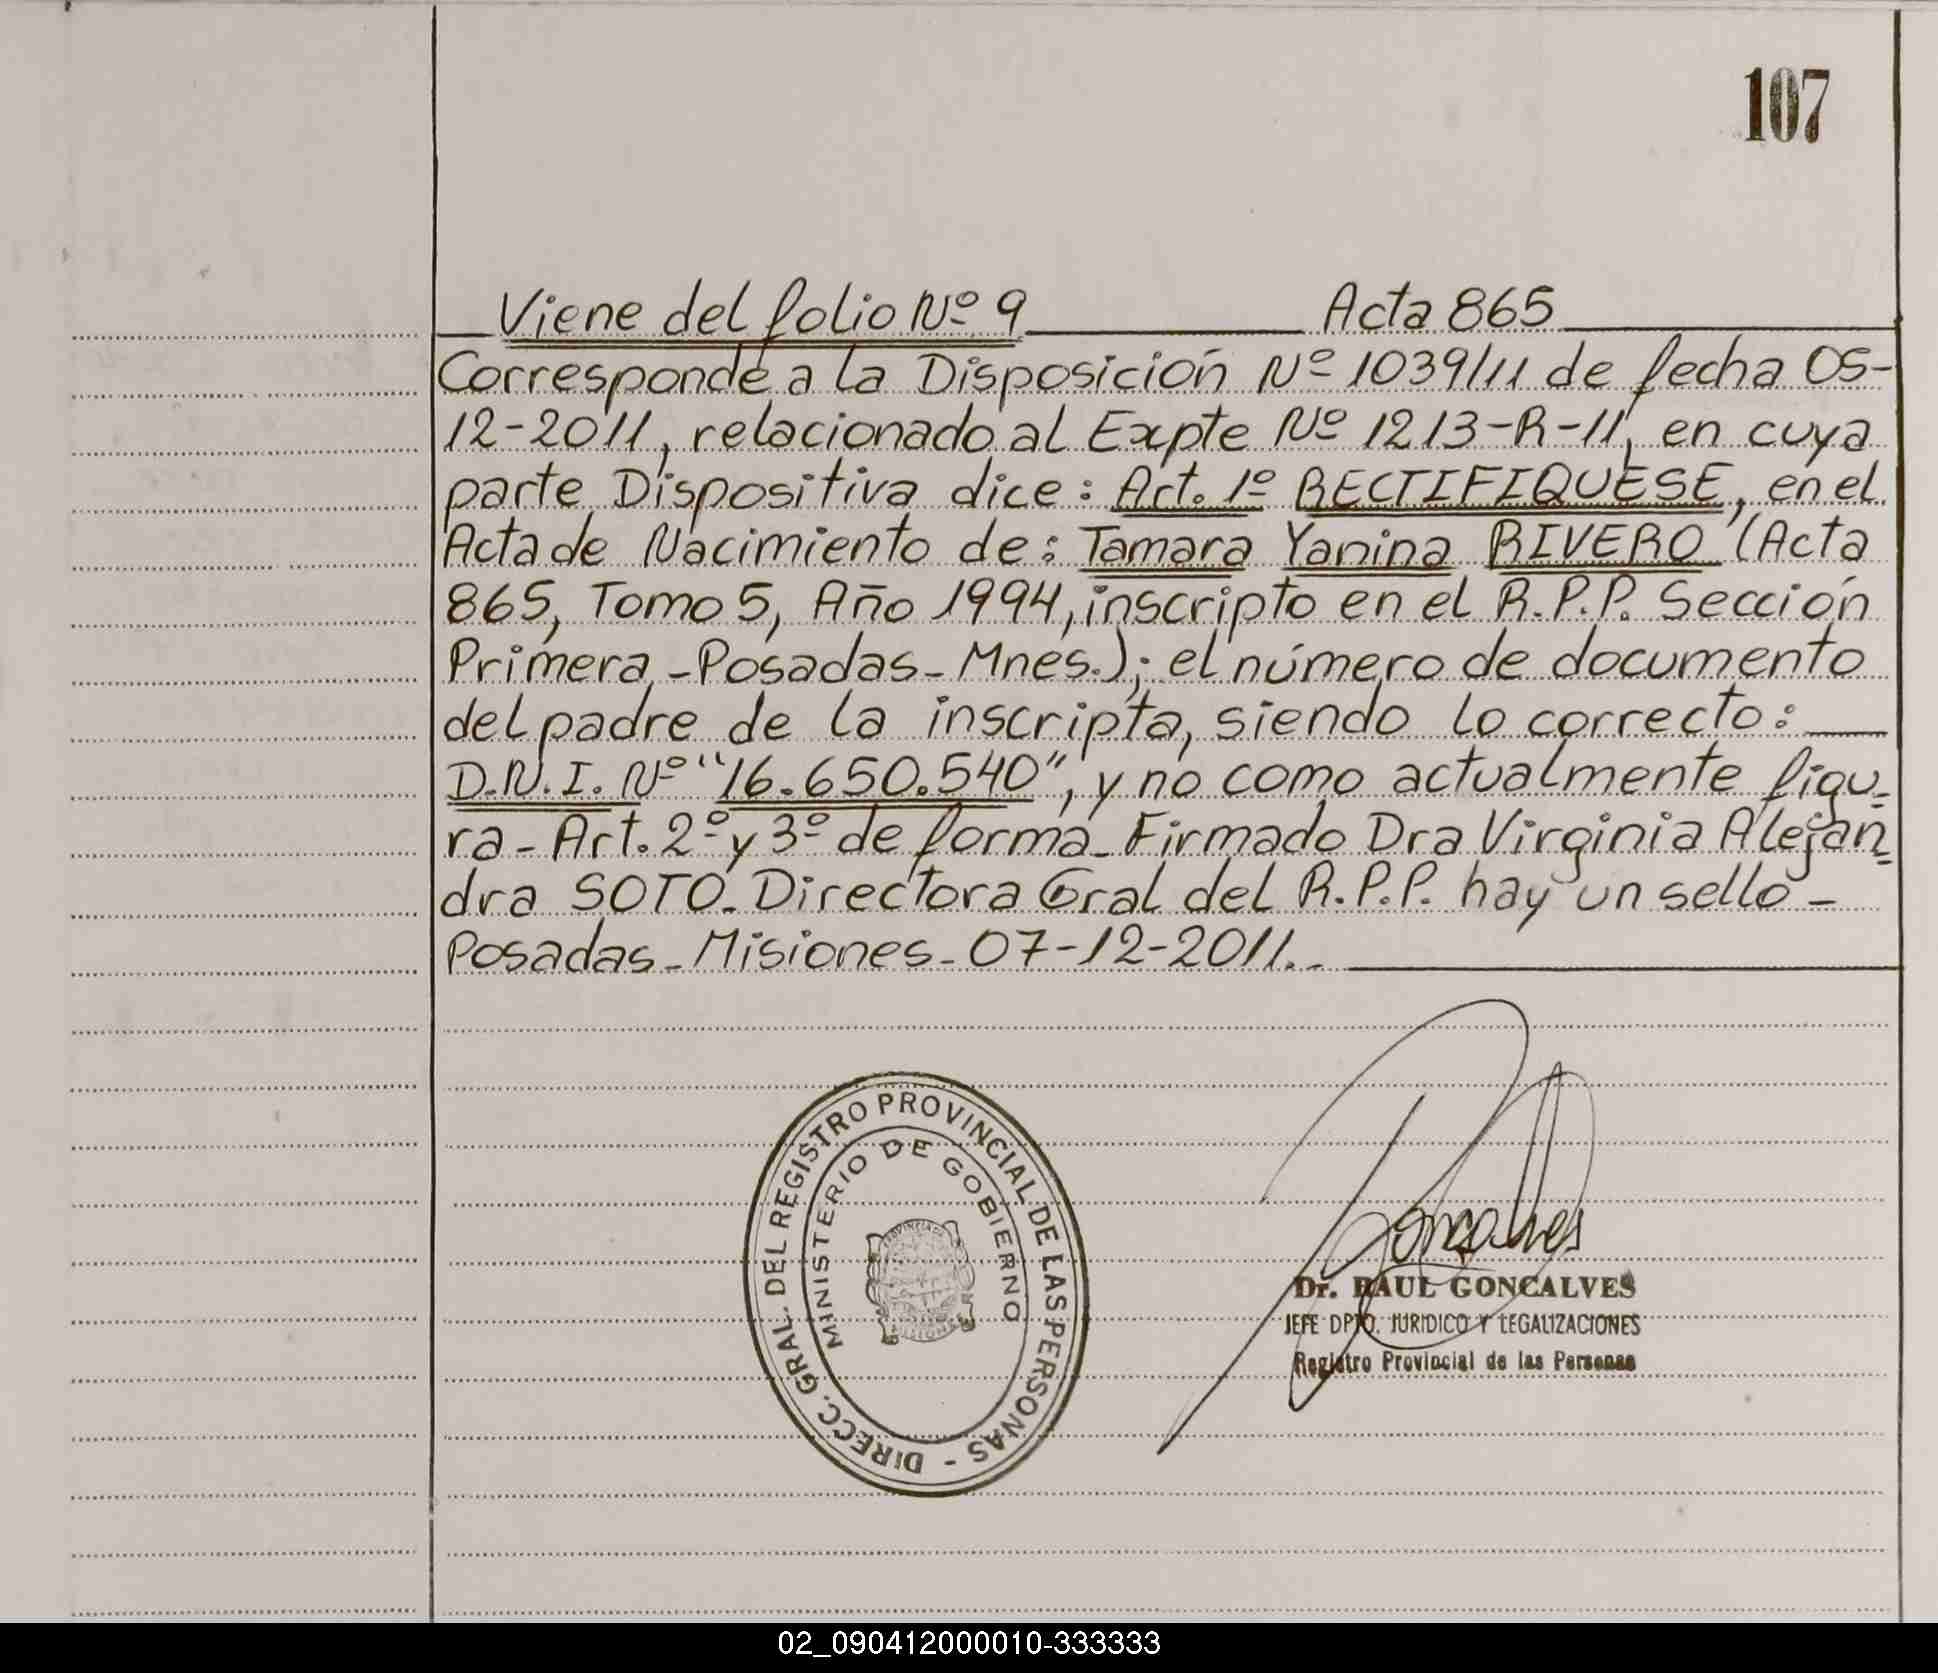 107
Viene del folio Nº 9 Acta 865
Corresponde a la Disposición Nº 1039/11 de fecha 05-
12-2011, relacionado al Expte Nº 1213-R-11, en cuya
parte Dispositiva dice: Art. 1º RECTIFIQUESE, en el
Acta de Nacimiento de: Tamara Yanina RIVERO (Acta
865, Tomo 5, Año 1994, inscripto en el R.P.P. Sección
Primera - Posadas - Mnes.); el número de documento
del padre de la inscripta, siendo lo correcto:
D.N.I. Nº "16.650.540", y no como actualmente figu-
ra - Art. 2º y 3º de forma - Firmado Dra Virginia Alejan-
dra SOTO. Directora Gral del R.P.P. hay un sello -
Posadas - Misiones - 07-12-2011. -
DIRECC. GRAL. DEL REGISTRO PROVINCIAL DE LAS PERSONAS -
MINISTERIO DE GOBIERNO
PROVINCIA DE
MISIONES
Goncalves
Dr. RAUL GONCALVES
JEFE DPTO. JURIDICO Y LEGALIZACIONES
Registro Provincial de las Personas
02_090412000010-333333